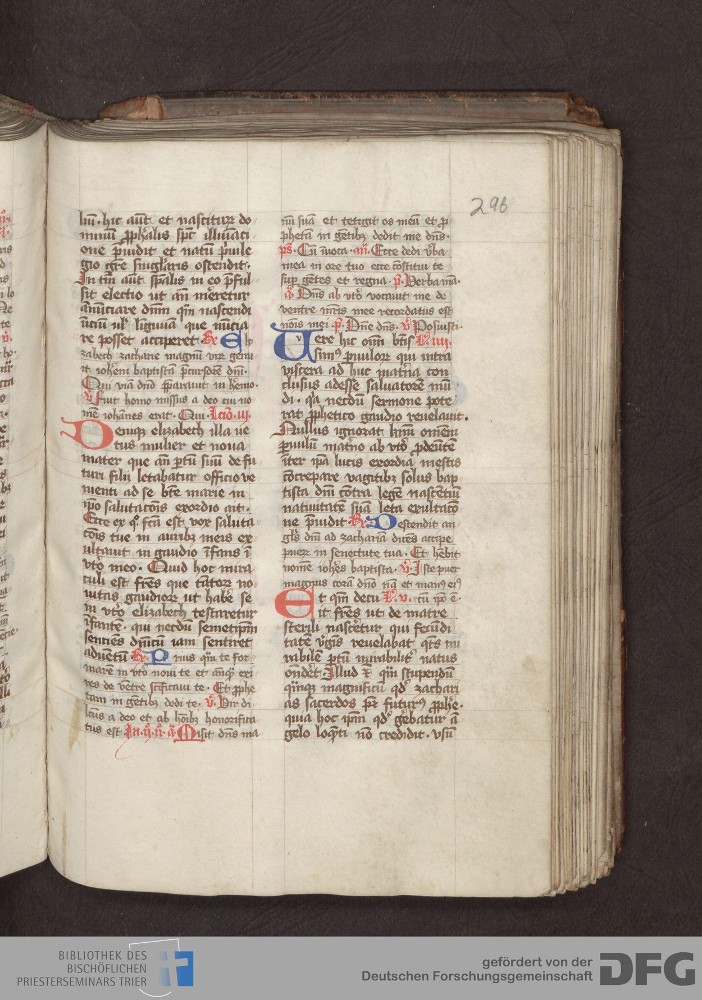 296
liū · hic aūt et nascitur do
minū ꝓphalis sp̄c illūīati
one p̄uidit et natū p̄uile
gio gr̄e singlaris ostendit ·
In tm̄ aūt sp̄alis in eo p̄ful
sit electio ut an̄ m̄eretur
annūciare dnm̄ qm̄ nascendi
ūciū ul' liguiā que nūcia
re posset acciperet · R̄ Ely
zabech zacharie magnū virū genu
it ioh̄em baptistā p̄cursorē dnī ·
Qui viā dnō p̄parauit in h̄emo ·
V̄ Fuit homo missus a deo cui no
mē iohānes erat · Qui · Lcīo · iij ·
Deniq̨ elizabech illa ue
tus mulier et noua
mater que an̄ ꝑtū suū de fu
turi filii letabatur officio ue
nienti ad se bt̄e marie in
ip̄o salutacōis exordio ait ·
Ecce ex q° fc̄a est vox saluta
cōis tue in aurib; meis ex
ultauit in gaudio īfans ī
vt̄o meo · Quid hoc mira
culi est fr̄es que tātorꝫ no
uitas gaudiorꝫ ut hab̄e se
in vt̄o elizabech testaretur
īfante · qui necdū semetip̄m
senciēs dnīcū iam sentiret
aduētū R̄ Prius qm̄ te for
marē in vt̄o noui te et anq̨̄ exi
res de vētre sc̄ificaui te · Et ꝓphe
tam in gētib; dedi te · V̄ Vir di
lcūs a deo et ab hoīb; honorifica
tus est In · ij · n̄ · a Misit dn̄s ma
nū suā et tetigit os meū et ꝓ
phetā in gētib; dedit me dn̄s ·
ps̄ · Cū īuoca · an̄ · Ecce dedi v̄ba
mea in ore tuo ecce cōstitui te
suꝑ gētes et regna · p̄ · Verba mā ·
a Dn̄s ab vt̄o vocauit me de
ventre mr̄is mee recordatus est
nōis mei p̄ · Dnē dn̄s · V̄ Posuisti ·
Vere hic om̄i bt̄is L̄ · iiij ·
simꝰ ꝑuulorꝫ qui intra
viscera ad huc mat̄na con
clusus adesse saluatorē mū
di · qa necdū sermone pote
rat ꝓphetico gaudio reuelauit ·
Nullus ignorat om̄em
ꝑuulū mat̄no ab vt̄o ꝓdeūtē
īter ip̄a lucis exordia mestis
cōcrepare vagitib; solus bap
tista dnī cōtra legē nascētiū
natiuitatē suā leta exultacō
ne p̄uidit · R̄ Descendit an
gl̄s dnī ad zachariā dicēs accipe
puerꝫ in senectute tua · Et h̄ebit
nomē ioh̄es baptista · V̄ Iste puer
magnus corā dnō nā et manꝰ eiꝰ
Et qm̄ decu L̄ · v · cū ip̄o ē ·
it fr̄es uti de matre
sterili nascretur qui fecūdi
tatē v̄gis reuelabat qt̄s mi
rabilē ꝑtū mirabilit̄ natus
ondēt · Illud qm̄ stupendū
qm̄q̨ magnificū qd̄ zachari
as sacerdos pr̄ futurꝰ ꝓphe ·
quia hoc ip̄m qd̄ gēbatur ā
gelo loq̄nti nō credidit · vsū
BIBLIOTHEK DES
BISCHÖFLICHEN
PRIESTERSEMINARS TRIER
gefördert von der
Deutschen Forschungsgemeinschaft
DFG